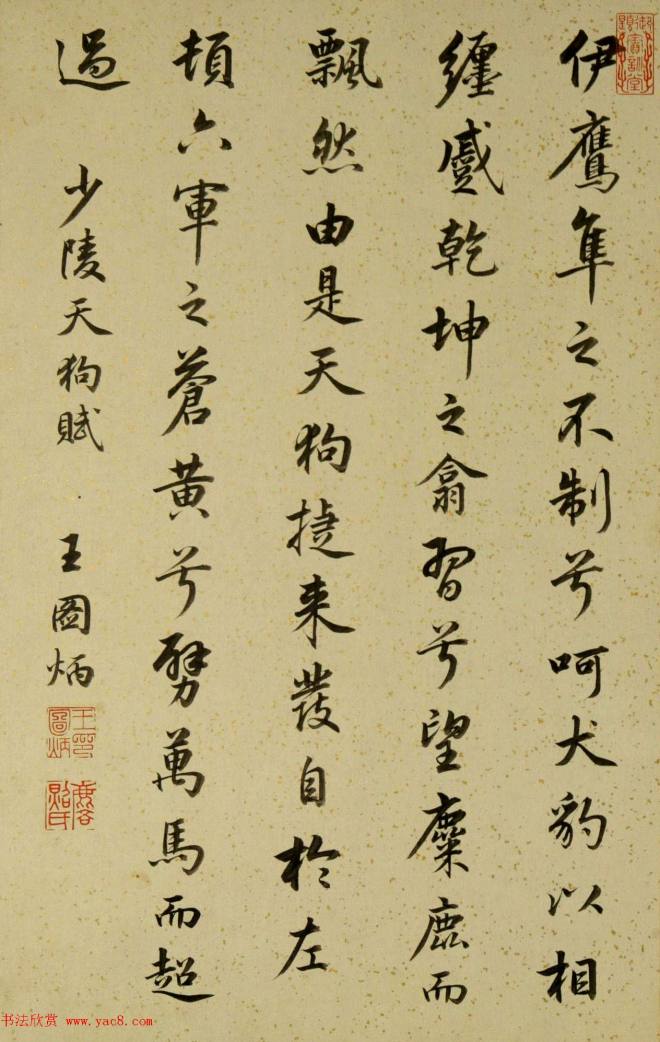 伊鷹隼之不制兮呵犬豹以相
纏蹙乾坤之翕習兮望麋鹿而
飄然由是天狗捷来發自於左
頓六軍之蒼黄兮劈萬馬而超
過 少陵天狗賦 王圖炳
王印圖炳
书法欣赏 www.yac8.com